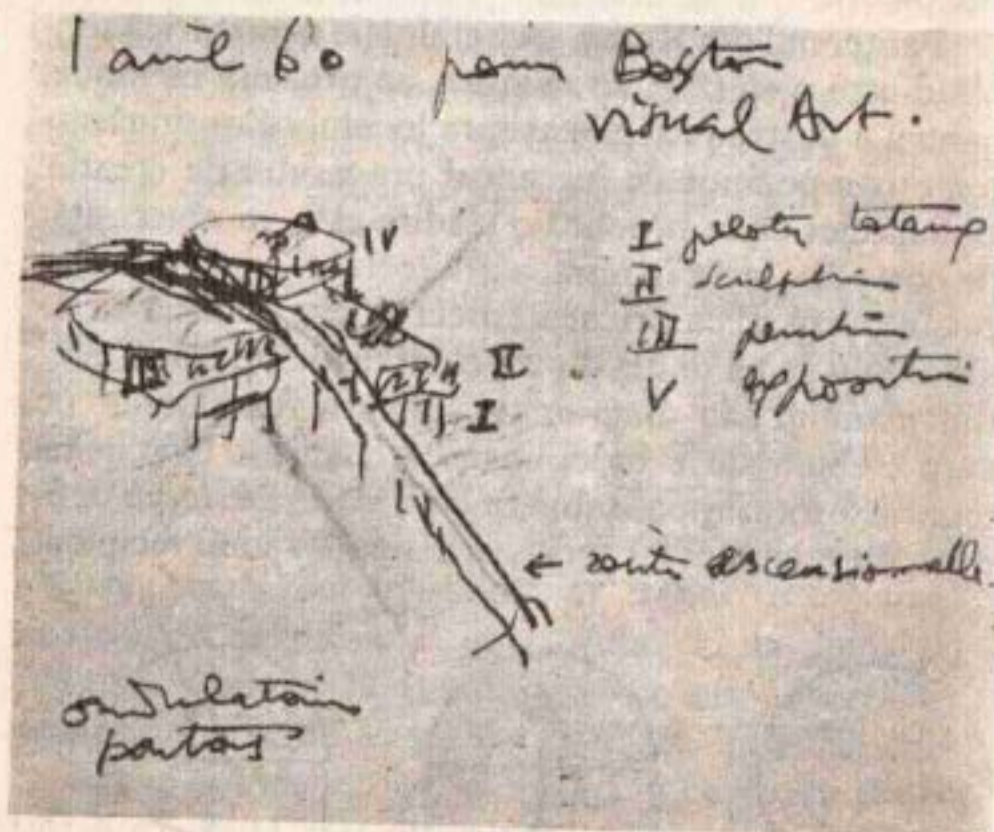 1 avril 60 pour Boston
visual Art.
IV
I pilotis
II sculpture
III peinture
V exposition
III
II
I
← route ascensionnelle
ondulatoire
partout